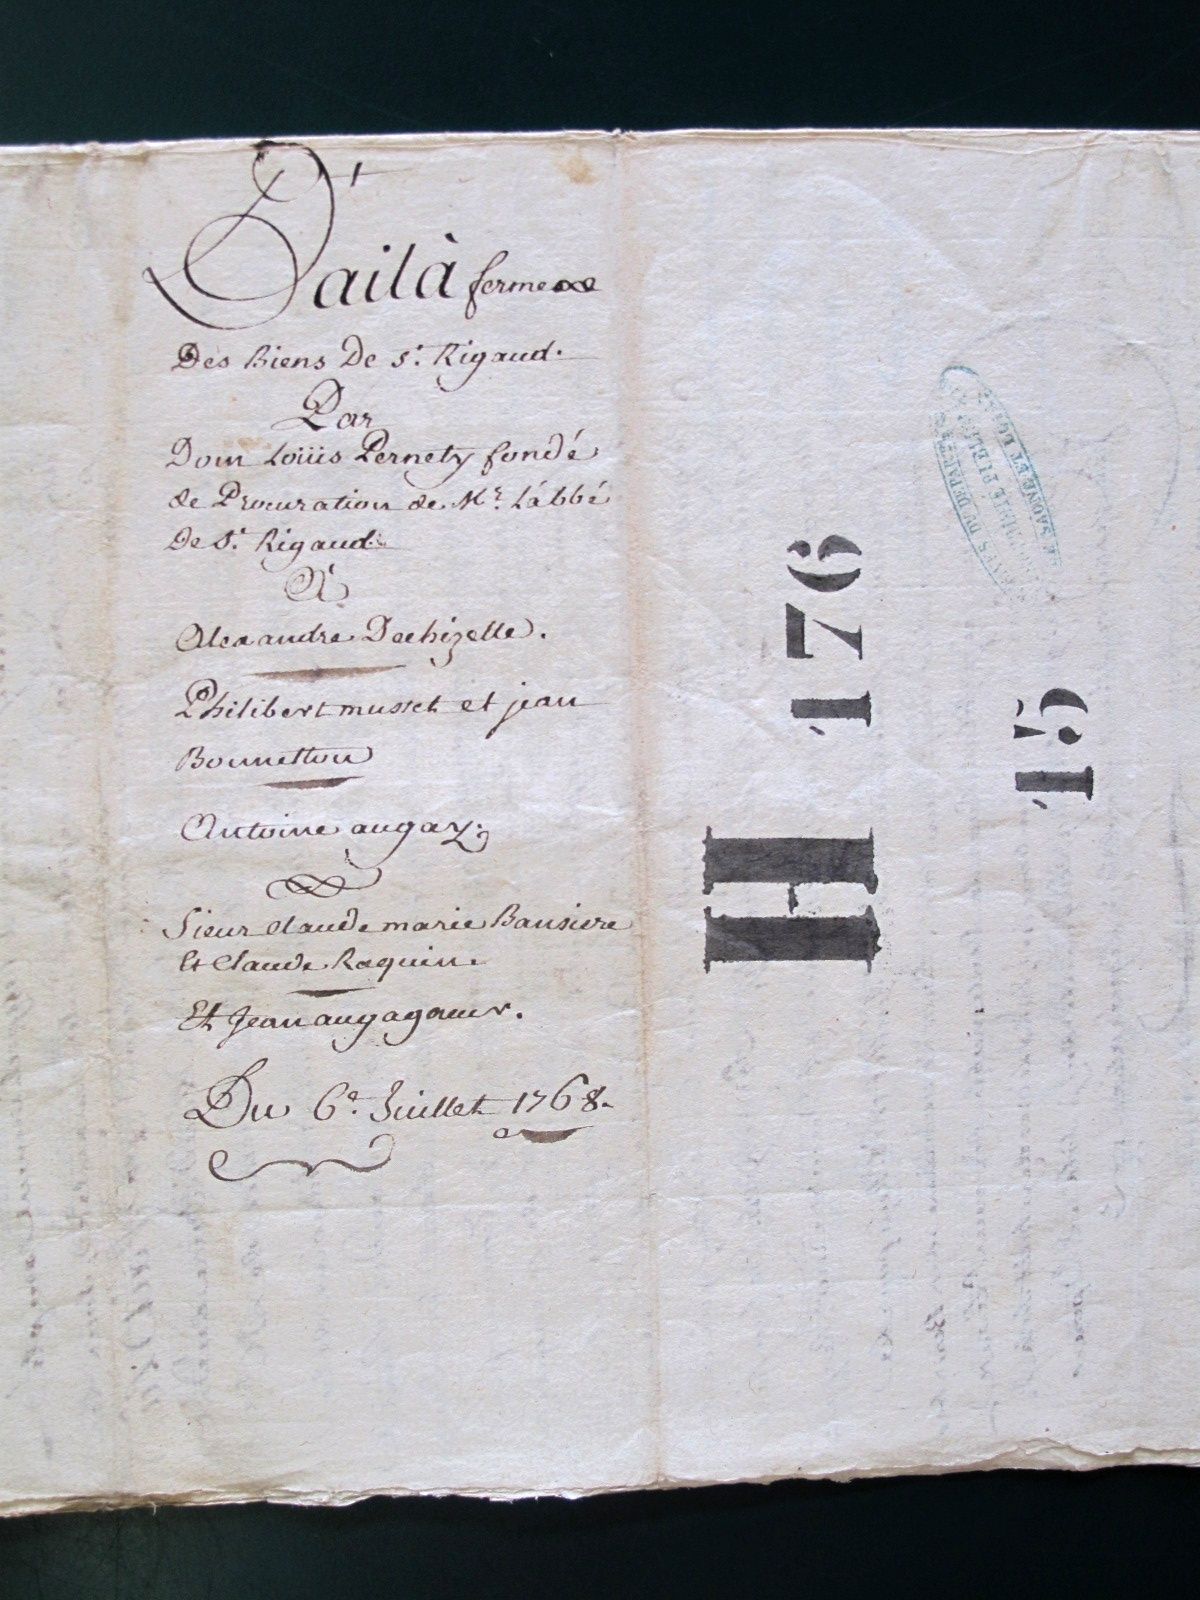 Bail à ferme
Des Biens De St. Rigaud.
Par
Dom Loüis Pernety fondé
de Procuration de Mr. L'abbé
De St. Rigaud
A
Alexandre Dechizelle.
Philibert musset et jean
Bonnetton
Antoine augay.
Sieur Claude marie Bausivre
Et Claude Raquin.
Et Jean augagneur.
Du 6e. Juillet 1768.
H 176
15
SAONE ET LOIRE